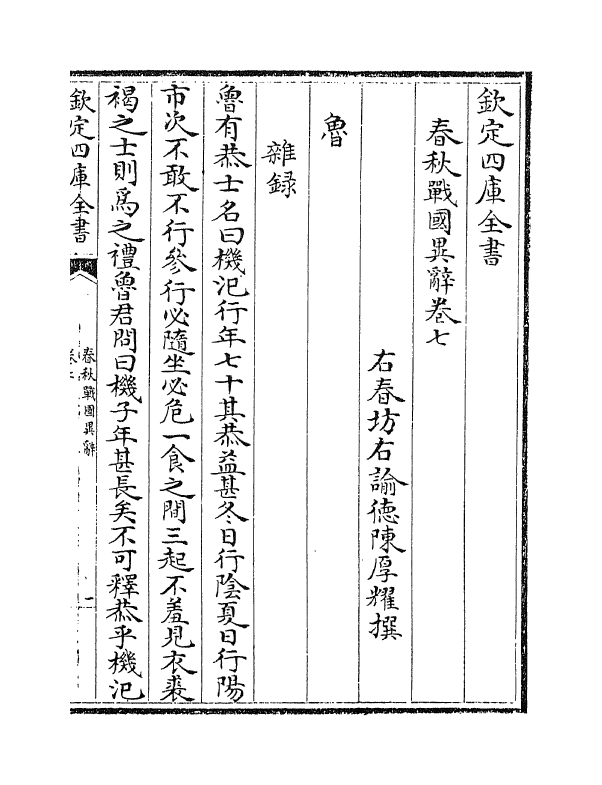 欽定四庫全書
春秋戰國異辭卷七
右春坊右諭德陳厚耀撰
魯
雜録
魯有恭士名曰機氾行年七十其恭益甚冬日行陰夏日行陽
市次不敢不行參行必隨坐必危一食之間三起不羞見衣裘
褐之士則爲之禮魯君問曰機子年甚長矣不可釋恭乎機氾
欽定四庫全書
春秋戰國異辭